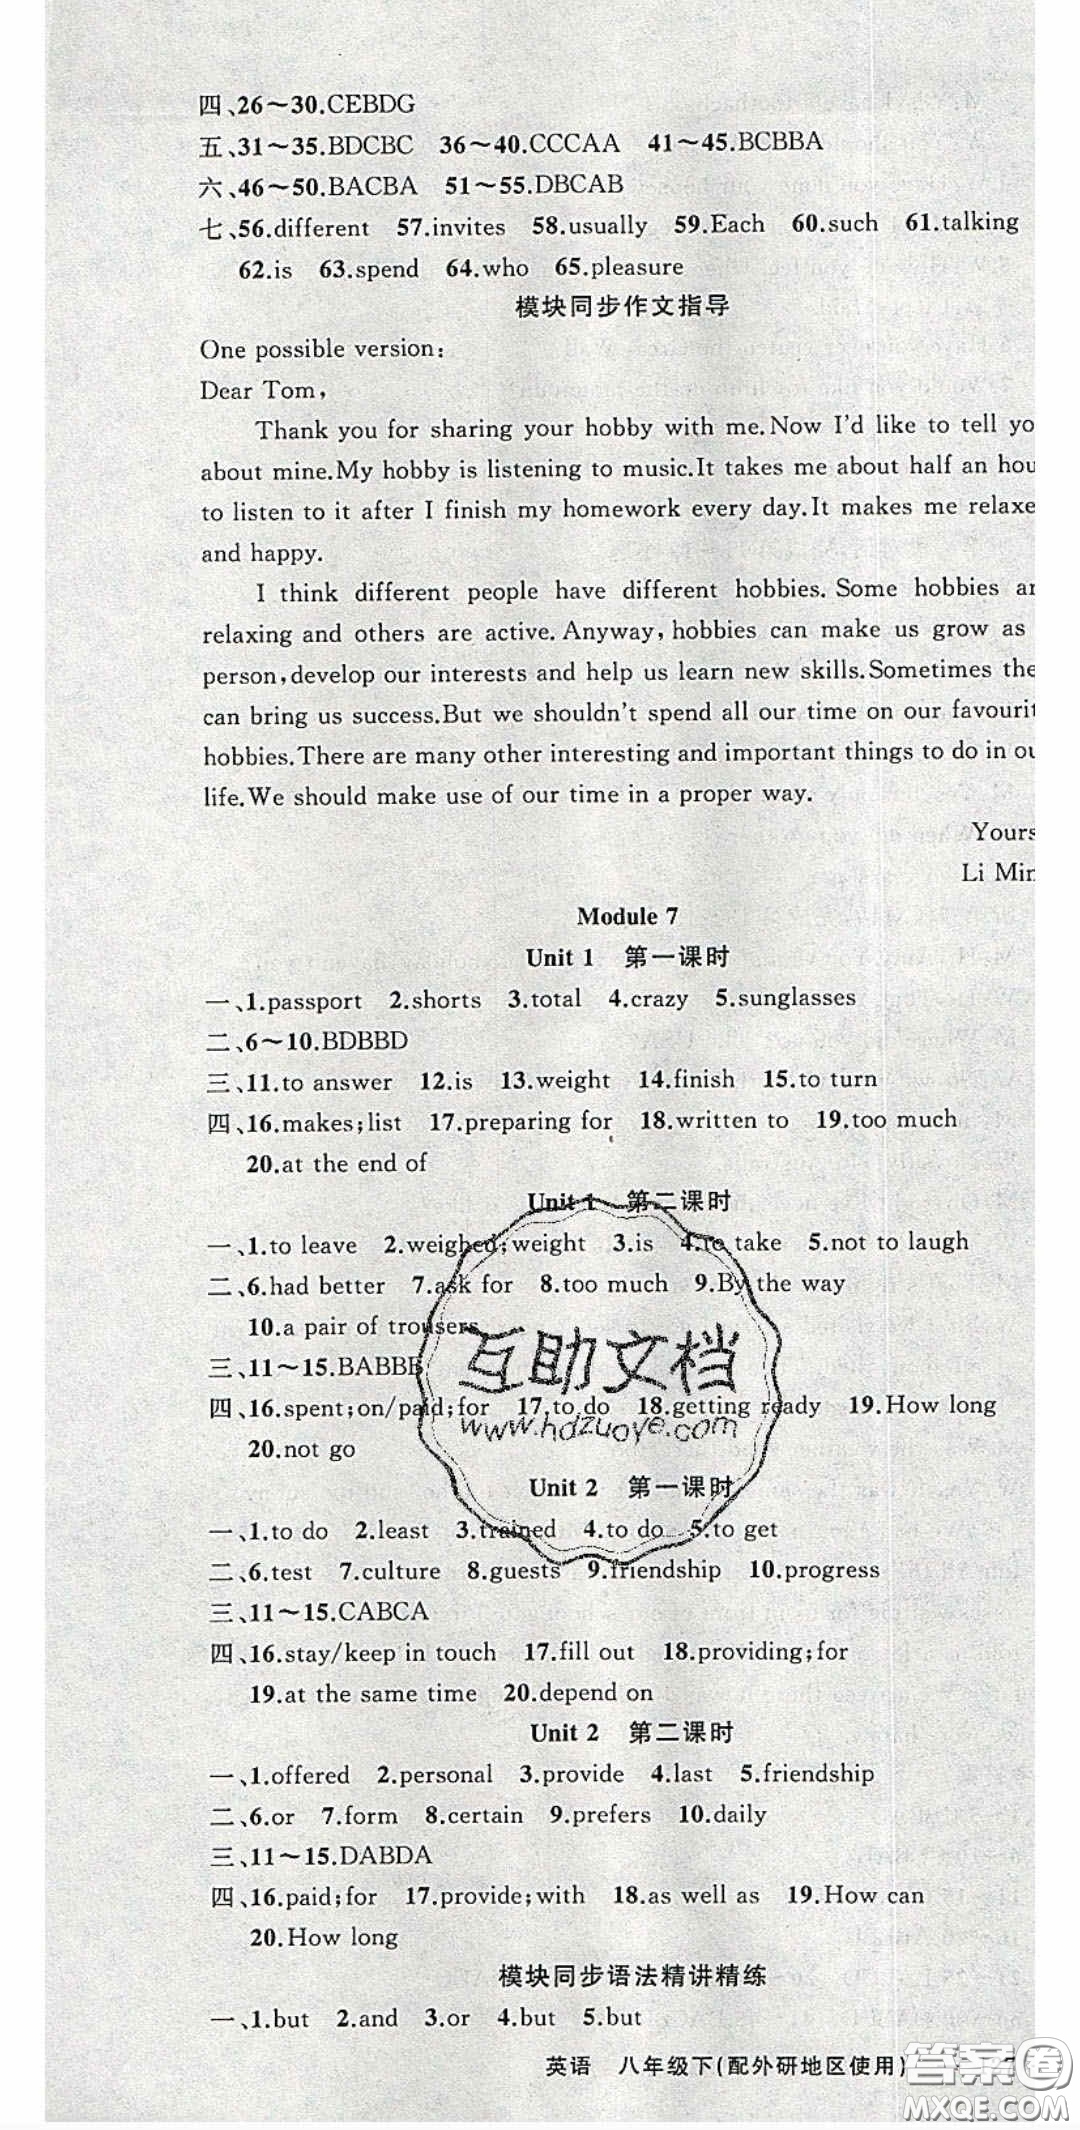 四、26～30.CEBDG
五、31～35.BDCBC 36～40.CCCAA 41～45.BCBBA
六、46～50.BACBA 51～55.DBCAB
七、56.different 57.invites 58.usually 59.Each 60.such 61.talking
62.is 63.spend 64.who 65.pleasure
模块同步作文指导
One possible version:
Dear Tom,
Thank you for sharing your hobby with me.Now I'd like to tell yo
about mine.My hobby is listening to music.It takes me about half an hou
to listen to it after I finish my homework every day.It makes me relaxe
and happy.
I think different people have different hobbies. Some hobbies ar
relaxing and others are active. Anyway, hobbies can make us grow as
person,develop our interests and help us learn new skills.Sometimes the
can bring us success.But we shouldn't spend all our time on our favourit
hobbies.There are many other interesting and important things to do in ou
life.We should make use of our time in a proper way.
Yours
Li Min
Module 7
Unit 1 第一课时
一、1.passport 2.shorts 3.total 4.crazy 5.sunglasses
二、6～10.BDBBD
三、11.to answer 12.is 13.weight 14.finish 15.to turn
四、16.makes;list 17.preparing for 18.written to 19.too much
20.at the end of
Unit 1 第二课时
一、1.to leave 2.weighed;weight 3.is 4.to take 5.not to laugh
二、6.had better 7.ask for 8.too much 9.By the way
10.a pair of trousers
三、11～15.BABBB
四、16.spent;on/paid;for 17.to do 18.getting ready 19.How long
20.not go
互助文档
www.hdzuoye.com
Unit 2 第一课时
一、1.to do 2.least 3.trained 4.to do 5.to get
二、6.test 7.culture 8.guests 9.friendship 10.progress
三、11～15.CABCA
四、16.stay/keep in touch 17.fill out 18.providing;for
19.at the same time 20.depend on
Unit 2 第二课时
一、1.offered 2.personal 3.provide 4.last 5.friendship
二、6.or 7.form 8.certain 9.prefers 10.daily
三、11～15.DABDA
四、16.paid;for 17.provide;with 18.as well as 19.How can
20.How long
模块同步语法精讲精练
一、1.but 2.and 3.or 4.but 5.but
英语 八年级下(配外研地区使用)
答案圈
MXQE.COM